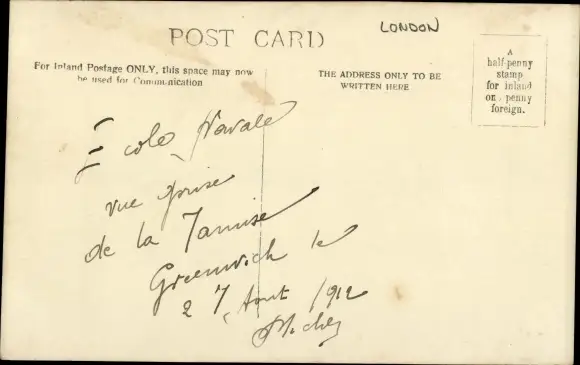 POST CARD
LONDON
For Inland Postage ONLY, this space may now
be used for Communication
THE ADDRESS ONLY TO BE
WRITTEN HERE
A
half-penny
stamp
for inland
one penny
foreign.
Ecole Navale
vue prise
de la Tamise
Greenwich le
27 Aout 1912